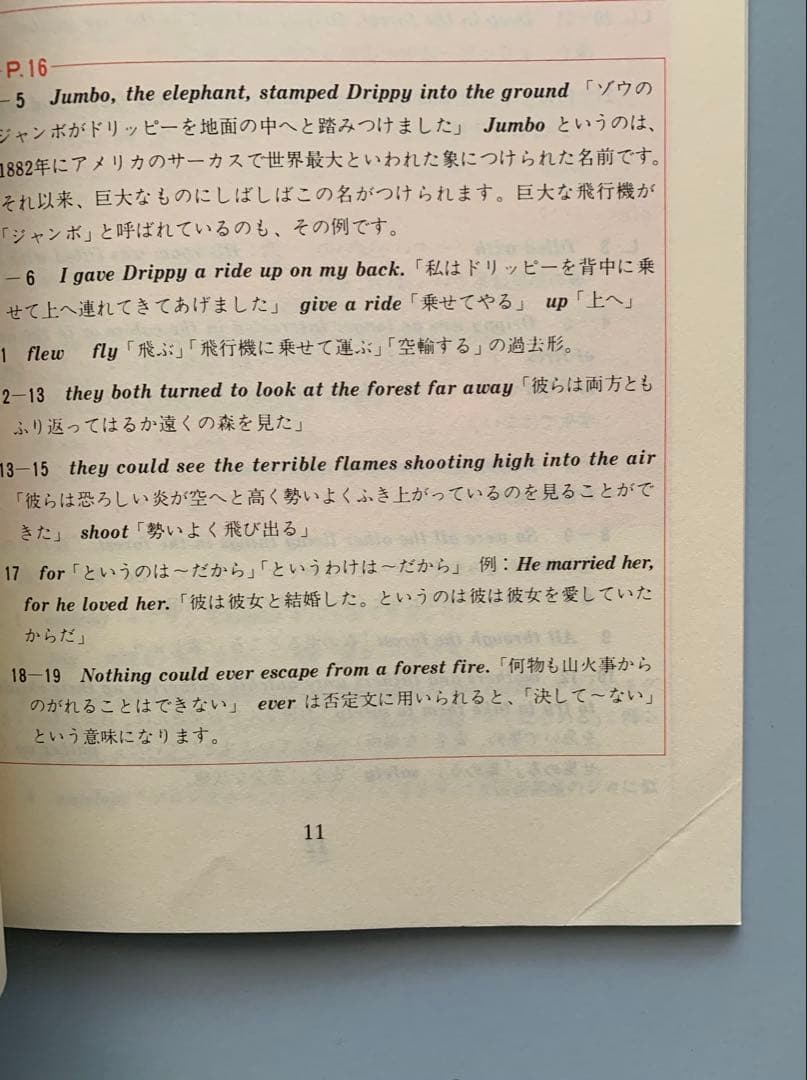 P.16
−5 Jumbo, the elephant, stamped Drippy into the ground 「ゾウの
ジャンボがドリッピーを地面の中へと踏みつけました」 Jumbo というのは、
1882年にアメリカのサーカスで世界最大といわれた象につけられた名前です。
それ以来、巨大なものにしばしばこの名がつけられます。巨大な飛行機が
「ジャンボ」と呼ばれているのも、その例です。
−6 I gave Drippy a ride up on my back.「私はドリッピーを背中に乗
せて上へ連れてきてあげました」 give a ride「乗せてやる」 up「上へ」
1 flew fly「飛ぶ」「飛行機に乗せて運ぶ」「空輸する」の過去形。
2−13 they both turned to look at the forest far away「彼らは両方とも
ふり返ってはるか遠くの森を見た」
13−15 they could see the terrible flames shooting high into the air
「彼らは恐ろしい炎が空へと高く勢いよくふき上がっているのを見ることがで
きた」 shoot「勢いよく飛び出る」
17 for「というのは〜だから」「というわけは〜だから」 例：He married her,
for he loved her.「彼は彼女と結婚した。というのは彼は彼女を愛していた
からだ」
18−19 Nothing could ever escape from a forest fire.「何物も山火事から
のがれることはできない」 ever は否定文に用いられると、「決して〜ない」
という意味になります。
11